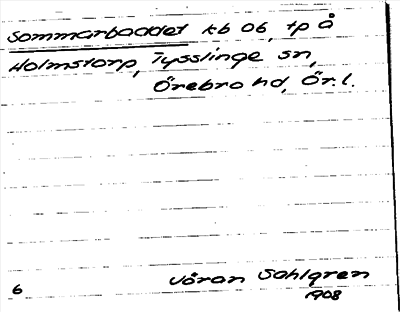 Sommarboddet kb 06, tp å
Holmstorp, Tysslinge sn,
Örebro hd, Ör.l.
Jöran Sahlgren
6
1908